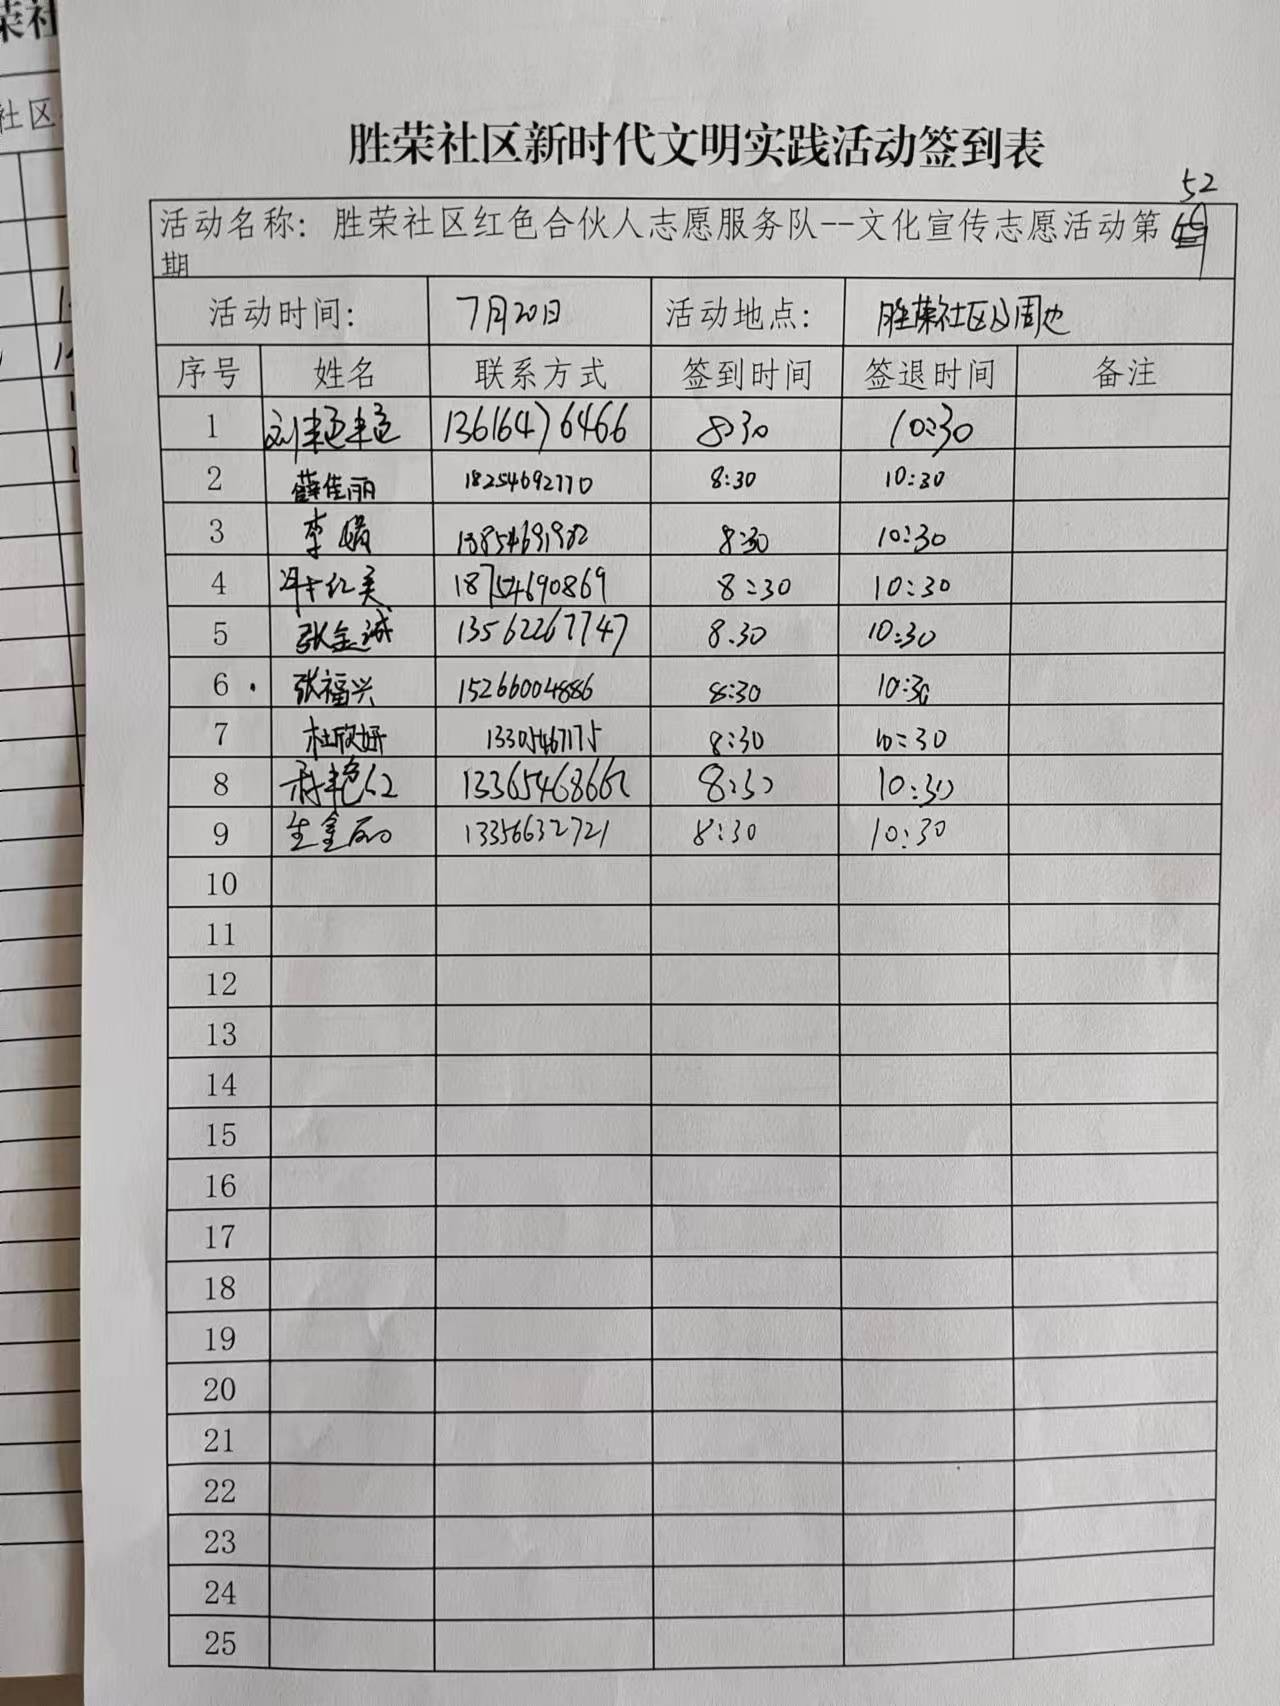 胜荣社区新时代文明实践活动签到表
52
活动名称：胜荣社区红色合伙人志愿服务队--文化宣传志愿活动第
期
活动时间： 7月20日 活动地点： 胜荣社区及周边
序号 姓名 联系方式 签到时间 签退时间 备注
1 刘艳艳 13616476466 8:30 10:30
2 薛佳丽 18254692770 8:30 10:30
3 李娟 8:30 10:30
4 牛红美 18754690869 8:30 10:30
5 张金诚 13562267747 8:30 10:30
6 张福兴 15266004886 8:30 10:30
7 杜欣妍 13305467175 8:30 10:30
8 艳红 8:30 10:30
9 生金 13356632721 8:30 10:30
10
11
12
13
14
15
16
17
18
19
20
21
22
23
24
25
荣社
社区